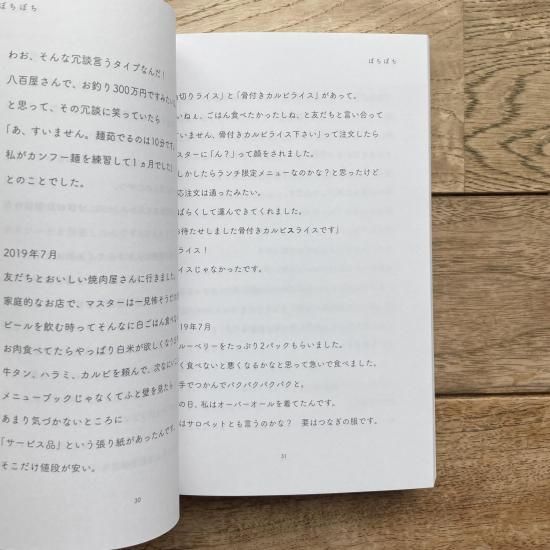 ぼちぼち
わお、そんな冗談言うタイプなんだ！
八百屋さんで、お釣り300万円ですみたいな
と思って、その冗談に笑っていたら
「あ、すいません。麺茹でるのは10分です。
私がカンフー麺を練習して1ヵ月でした」
とのことでした。
2019年7月
友だちとおいしい焼肉屋さんに行きました。
家庭的なお店で、マスターは一見怖そう
ビールを飲む時ってそんなに白ごはん食べ
お肉食べてたらやっぱり白米が欲しくなり
牛タン、ハラミ、カルビを頼んで、次なに
メニューブックじゃなくてふと壁を見たら
あまり気づかないところに
「サービス品」という張り紙があったんです。
そこだけ値段が安い。
30
ぼちぼち
切りライス」と「骨付きカルビライス」があって。
いねぇ、ごはん食べたかったしね、と友だちと言い合って
すいません、骨付きカルビライス下さい」って注文したら
スターに「ん？」って顔をされました。
しかしたらランチ限定メニューなのかな？と思ったけど
応注文は通ったみたい。
ばらくして運んできてくれました。
お待たせしました骨付きカルビスライスです」
ライス！
イスじゃなかったです。
19年7月
ルーベリーをたっぷり2パックもらいました。
く食べないと悪くなるかなと思って急いで食べました。
手でつかんでパクパクパクパクと。
の日、私はオーバーオールを着てたんです。
はサロペットとも言うのかな？　要はつなぎの服です。
31